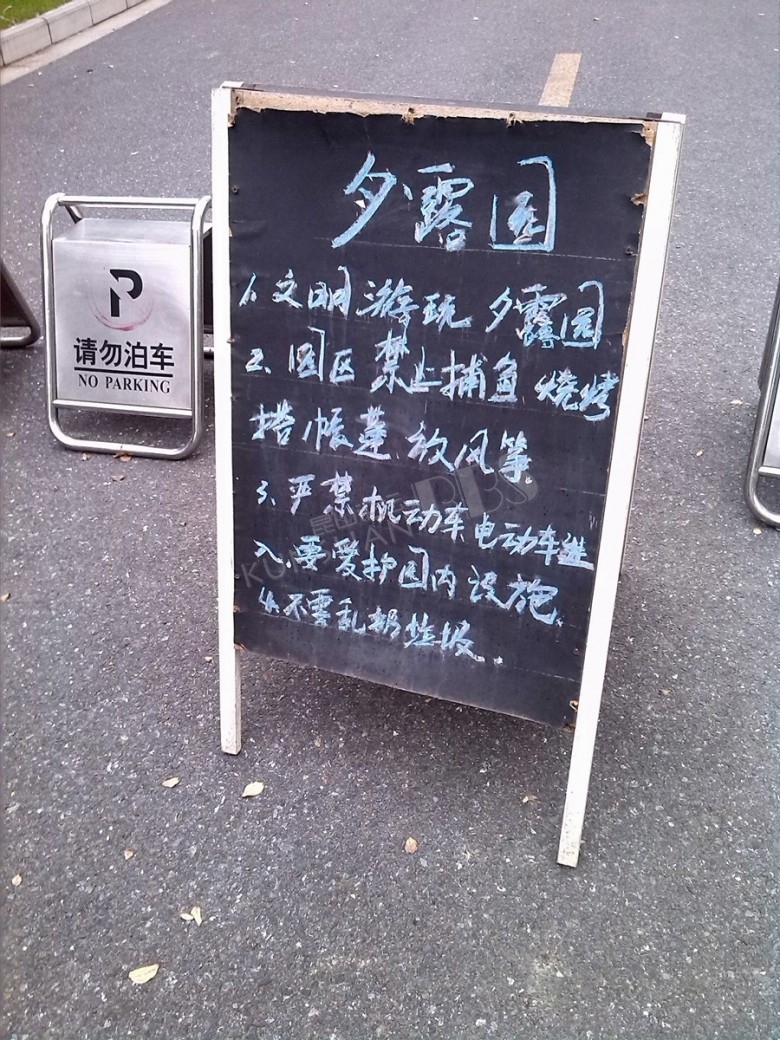 夕露园
1.文明游玩夕露园
2.园区禁止捕鱼 烧烤
搭帐蓬 放风筝
3.严禁机动车电动车进
入.要爱护园内设施.
4.不要乱扔垃圾.
P
请勿泊车
NO PARKING